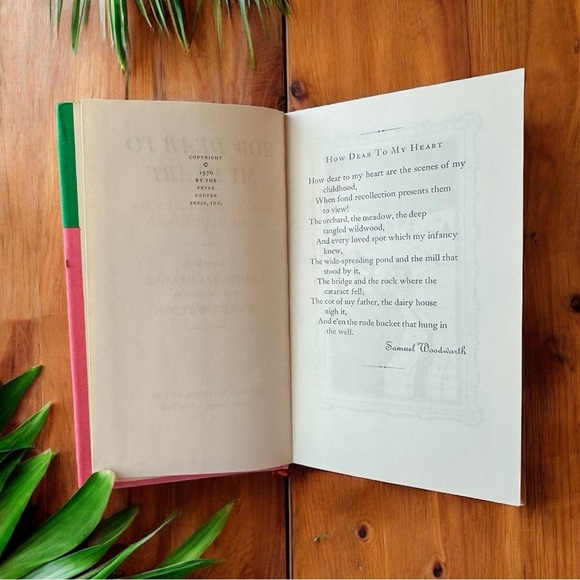 COPYRIGHT
©
1976
BY THE
PETER
PAUPER
PRESS, INC.
HOW DEAR TO MY HEART
How dear to my heart are the scenes of my
childhood,
When fond recollection presents them
to view!
The orchard, the meadow, the deep
tangled wildwood,
And every loved spot which my infancy
knew,
The wide-spreading pond and the mill that
stood by it,
The bridge and the rock where the
cataract fell;
The cot of my father, the dairy house
nigh it,
And e'en the rude bucket that hung in
the well.
Samuel Woodworth